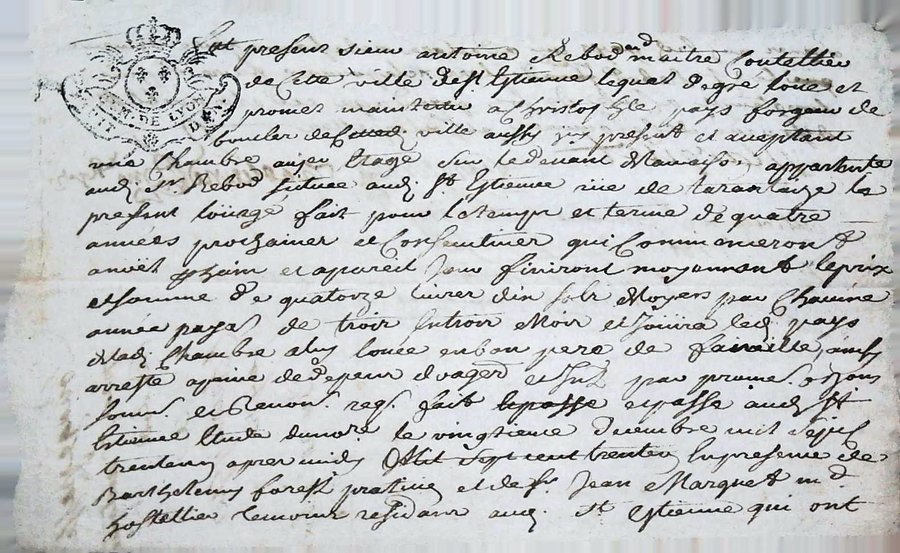 GEN. DE LYON
Fut present sieur antoine Rebod md maitre Coutellier
de Cette ville de st Estienne lequel de gre loue et
promet maintenir a Christophle pays forgeur de
boucles de Cetted. ville aussy present et aceptant
une Chambre au etage sur le devant Maison appartente
aud. sr Rebod située aud. st Estienne rüe de tarantaize la
present loüage fait pour le temps et terme de quatre
années prochaines et Consecutives qui Commenceront
a noël et a pareil Jour finiront moyennant le prix
et somme de quatorze livres dix sols Moyen par Chacune
année payab de trois En trois Mois et Joüira led. pays
de lad. Chambre a luy louée en bon pere de famille, ainsy
arresté a peine de depens et par promes.
soumis. et Renon. req. fait et passé aud. st
Estienne Etude du no.re le vingtieme decembre mil sept
trente apres midy En presence de
Barthelemy forest praticien et de sr. Jean Marque md
hostellier temoins residans aud. st Estienne qui ont